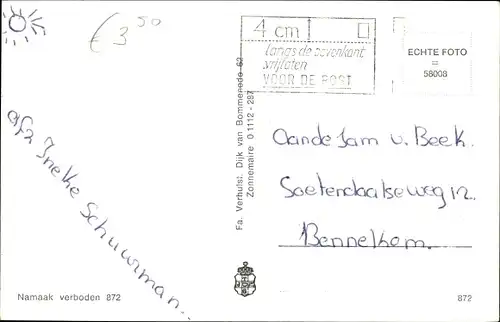 € 3 50
4 cm
langs de bovenkant
vrijlaten
VOOR DE POST
ECHTE FOTO
=
58008
Fa. Verhulst. Dijk van Bommenede 62
Zonnemaire 0 1112 - 287
afz Ineke Schuurman..
Aan de fam v. Beek.
Soetendaalseweg 12.
Bennekom.
Namaak verboden 872
872